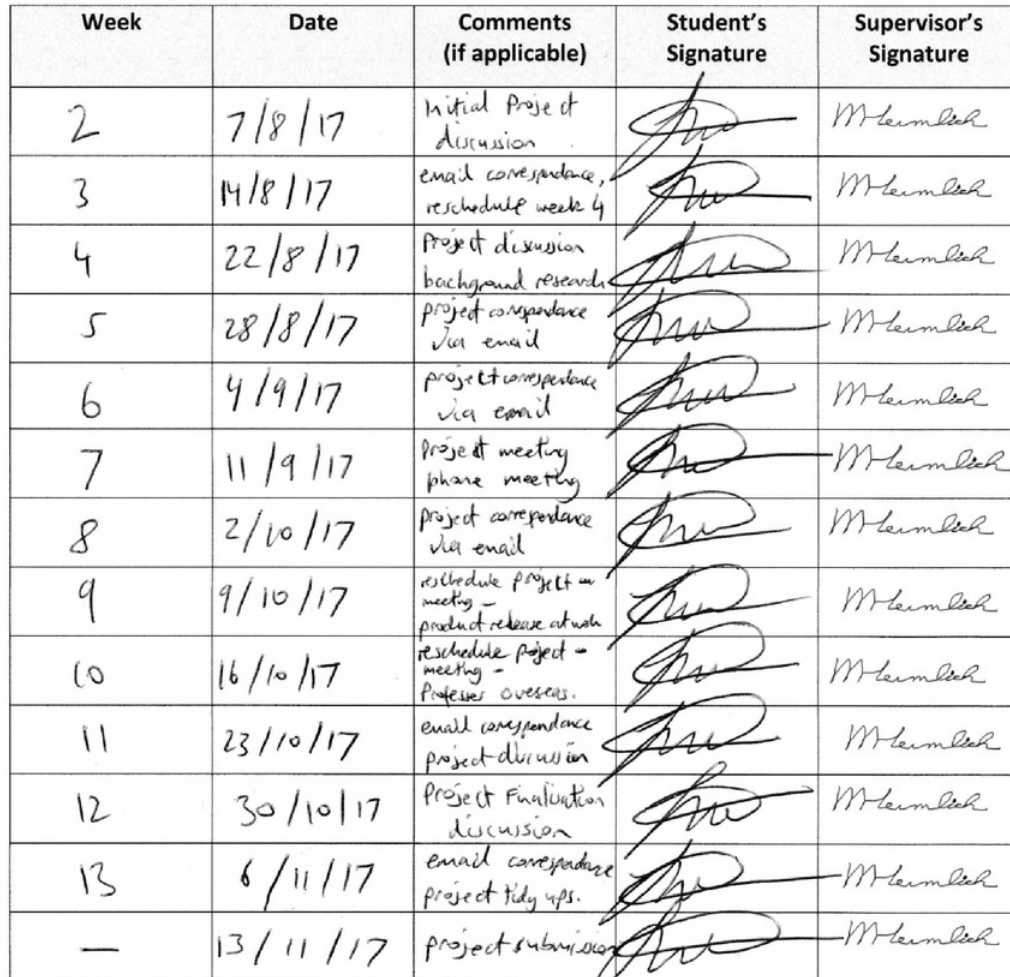 Week Date Comments (if applicable) Student's Signature Supervisor's Signature
2 7/8/17 Initial Project discussion MHeimlich
3 14/8/17 email correspondance, reschedule week 4 MHeimlich
4 22/8/17 Project discussion background research MHeimlich
5 28/8/17 project correspondance via email MHeimlich
6 4/9/17 project correspondance via email MHeimlich
7 11/9/17 project meeting phone meeting MHeimlich
8 2/10/17 project correspondance via email MHeimlich
9 9/10/17 reschedule project - meeting - product release at work MHeimlich
10 16/10/17 reschedule project - meeting - Professer overseas. MHeimlich
11 23/10/17 email correspondance project discussion MHeimlich
12 30/10/17 Project Finalisation discussion MHeimlich
13 6/11/17 email correspondance project tidy ups. MHeimlich
— 13/11/17 project submission MHeimlich